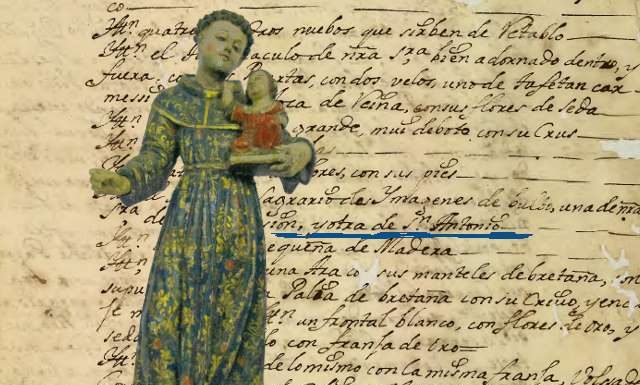 co
Ytt.n quatro dros nuebos que sirben de Retablo
Ytt.n el aculo de nra Sra bien adornado dentro, y
fuera. co rtas, con dos velos, uno de tafetan car
messi oca de Reina, con sus flores de seda
Ytt.n grande, mui deboto con su Crus
Ytt.n lores, con sus pies
Ytt.n agrario dos Ymagenes de bulto, una de nra
Sra de sion, y otra de Sn Antonio
Ytt.n equeña de Madera
Ytt.n una Ara co sus manteles de bretaña, con
su Palia de bretaña con su Cruo, y enc
Ytt.n un frontal blanco, con flores de oro, y
seda con franja de oro
Ytt.n de lo mismo con la misma franja,